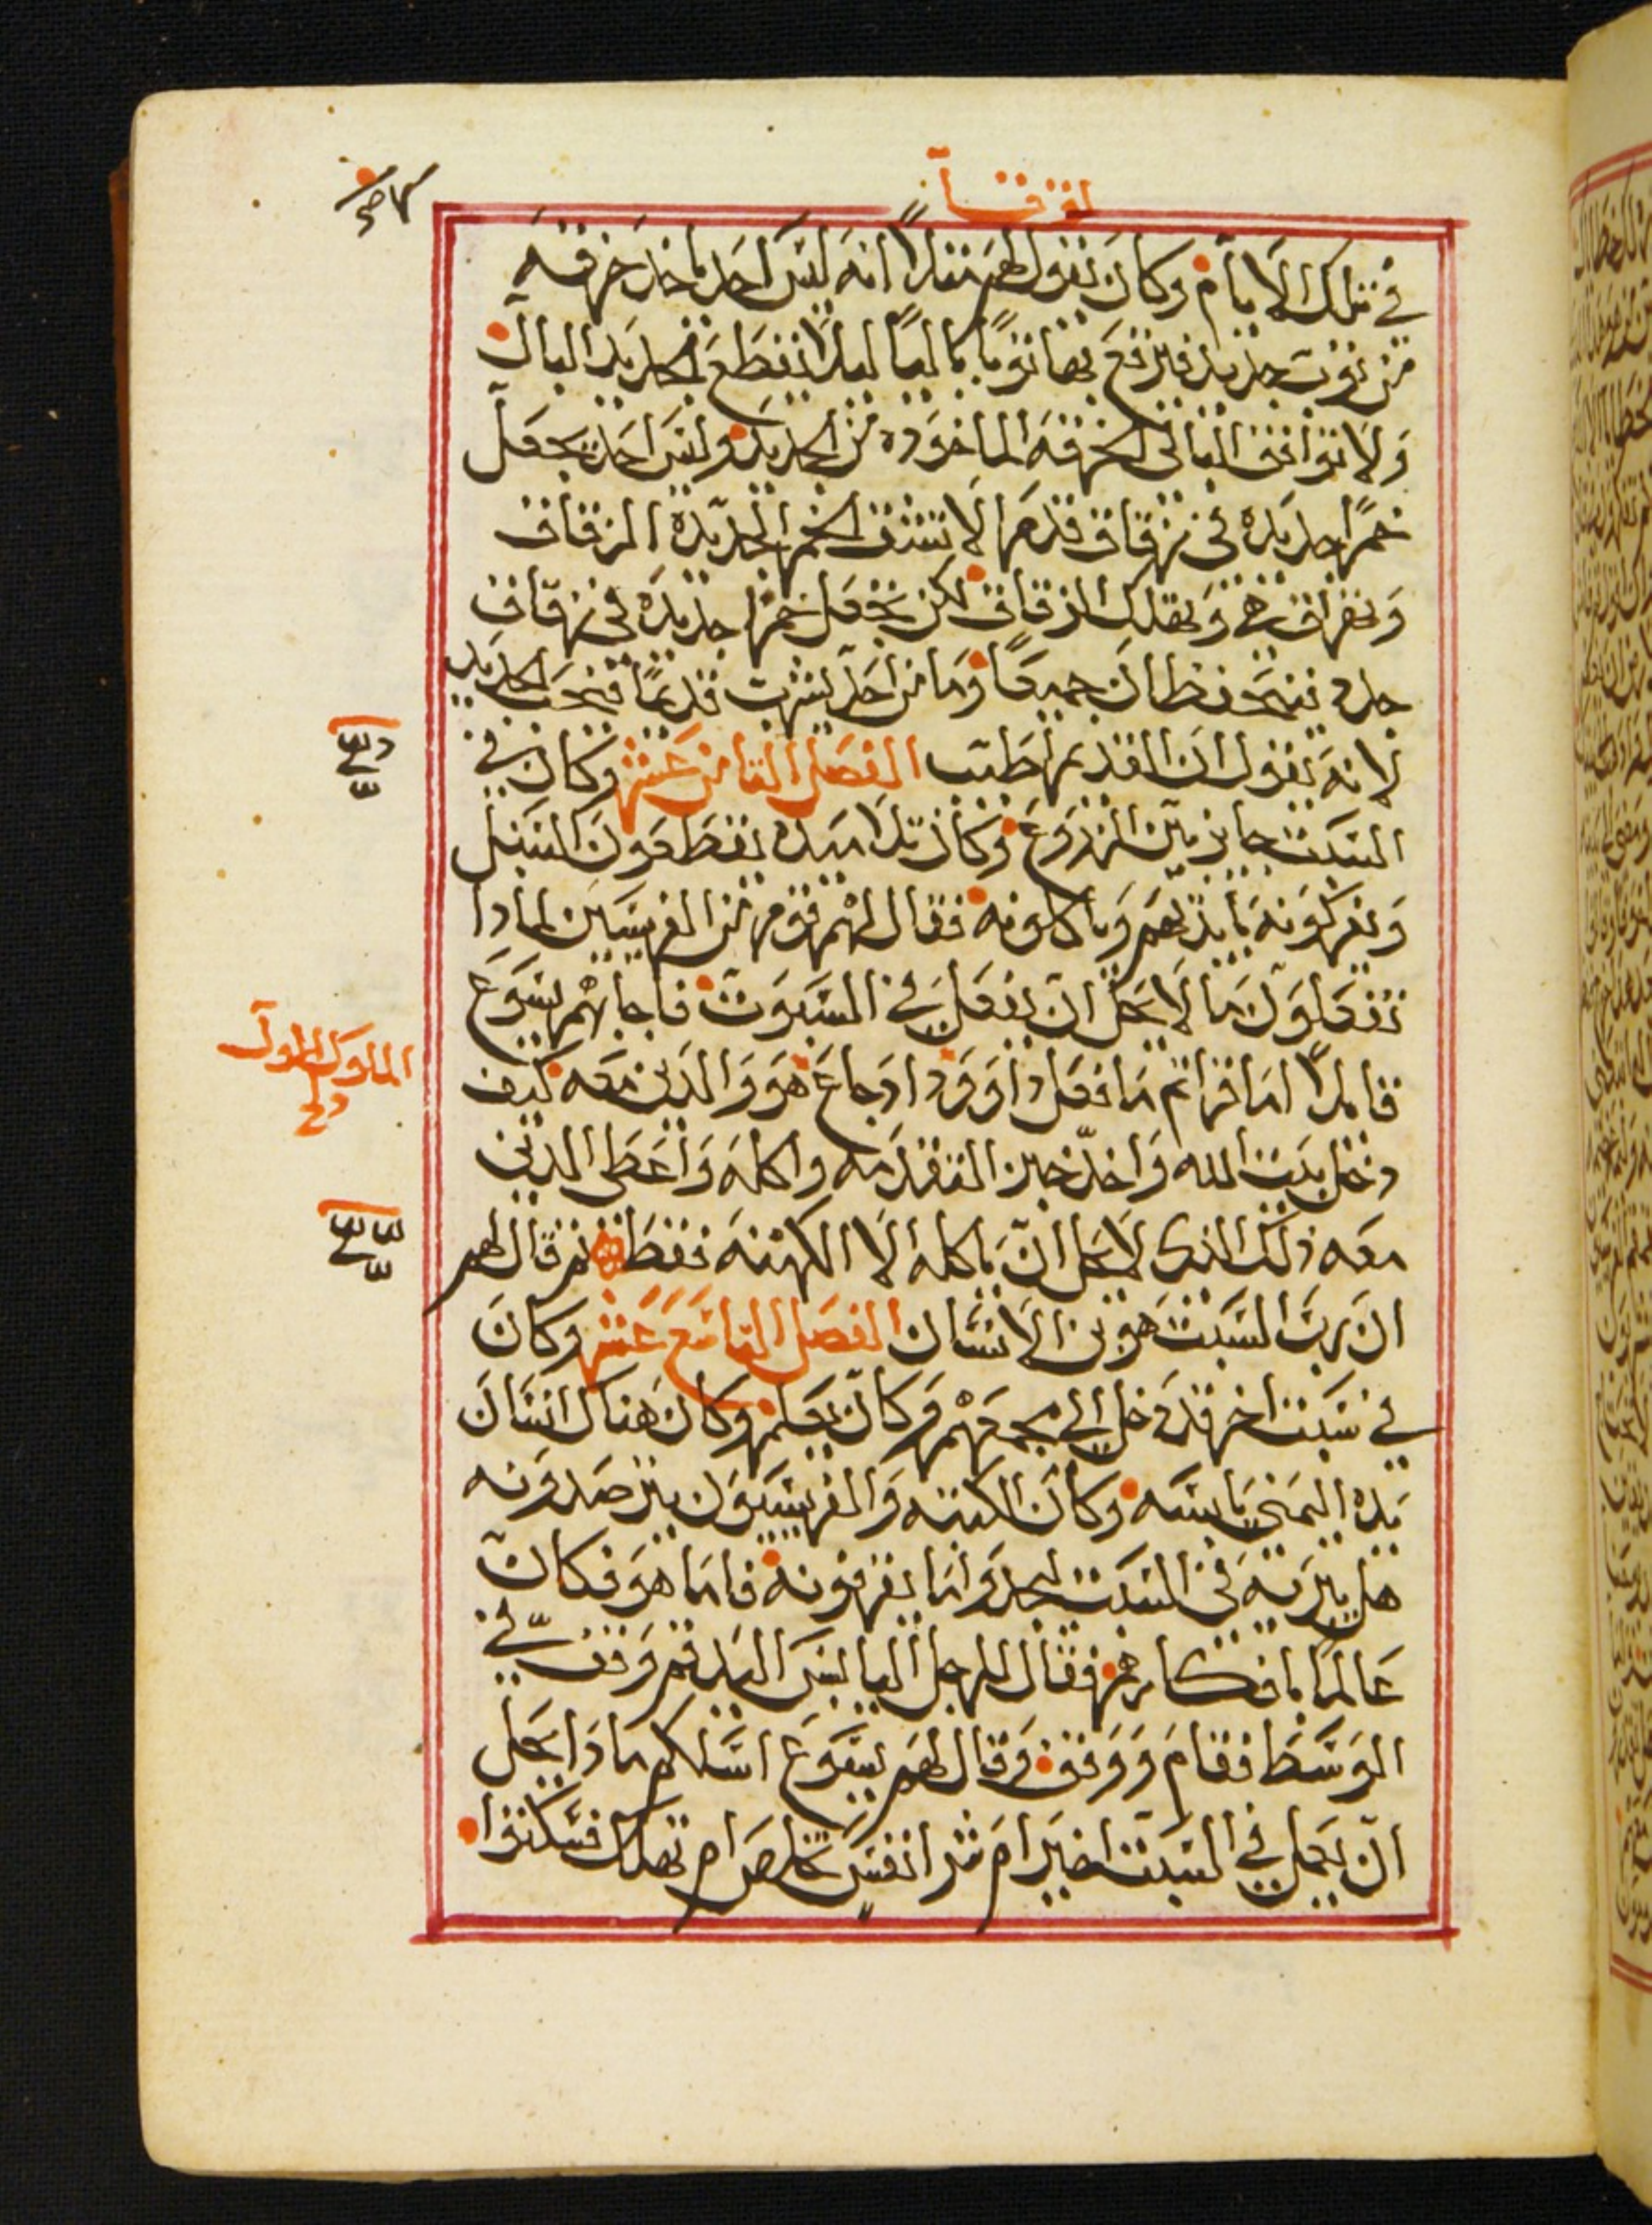 لوقا
في تلك الايام وكان يقول لهم مثلاً انه ليس احد ياخد خرقه
من ثوب جديد فيرقع بها ثوباً بالياً ليلا يقطع الجديد البال
ولا توافق البالي الخرقه الماخوده من الجديد وليس احد يجعل
خمراً جديده في زقاق قدم لا تشق الخمر الجديده الزقاق
وتهراق هي وتهلك الزقاق لكن تجعل خمرا جديده في زقاق
جدد فيتحفظان جميعاً وما من احد يشرب قديماً فيحب الجديد
لانه يقول ان القديم اطيب الفصل الثامن عشر وكان في
السبت جايز بين الزروع وكان تلاميده يقطعون السنبل
ويفركونه بايديهم وياكلونه فقال لهم قوم من الفريسيين لمادا
تفعلون ما لا يحل ان يفعل في السبوت فاجابهم يسوع
قايلاً اما قراتم ما فعل داوود اد جاع هو والدين معه كيف
دخل بيت الله واخد خبز التقدمه واكله واعطى الدين
معه ذلك الذى لا يحل ان ياكله الا الكهنه فقط ثم قال لهم
ان رب السبت هو بن الانسان الفصل التاسع عشر وكان
في سبت اخر قد دخل الي مجمعهم وكان يعلم وكان هناك انسان
يده اليمني يابسه وكان الكتبه والفريسيون يترصدونه
هل يبريه في السبت ليجدوا ما يقرفونه فاما هو فكان
عالماً بافكارهم فقال للرجل اليابس اليد قم وقف في
الوسط فقام ووقف وقال لهم يسوع اسلكم مادا يحل
ان يعمل في السبت اخير ام شر انفس تخلص ام تهلك فسكتوا
الملوك الاول